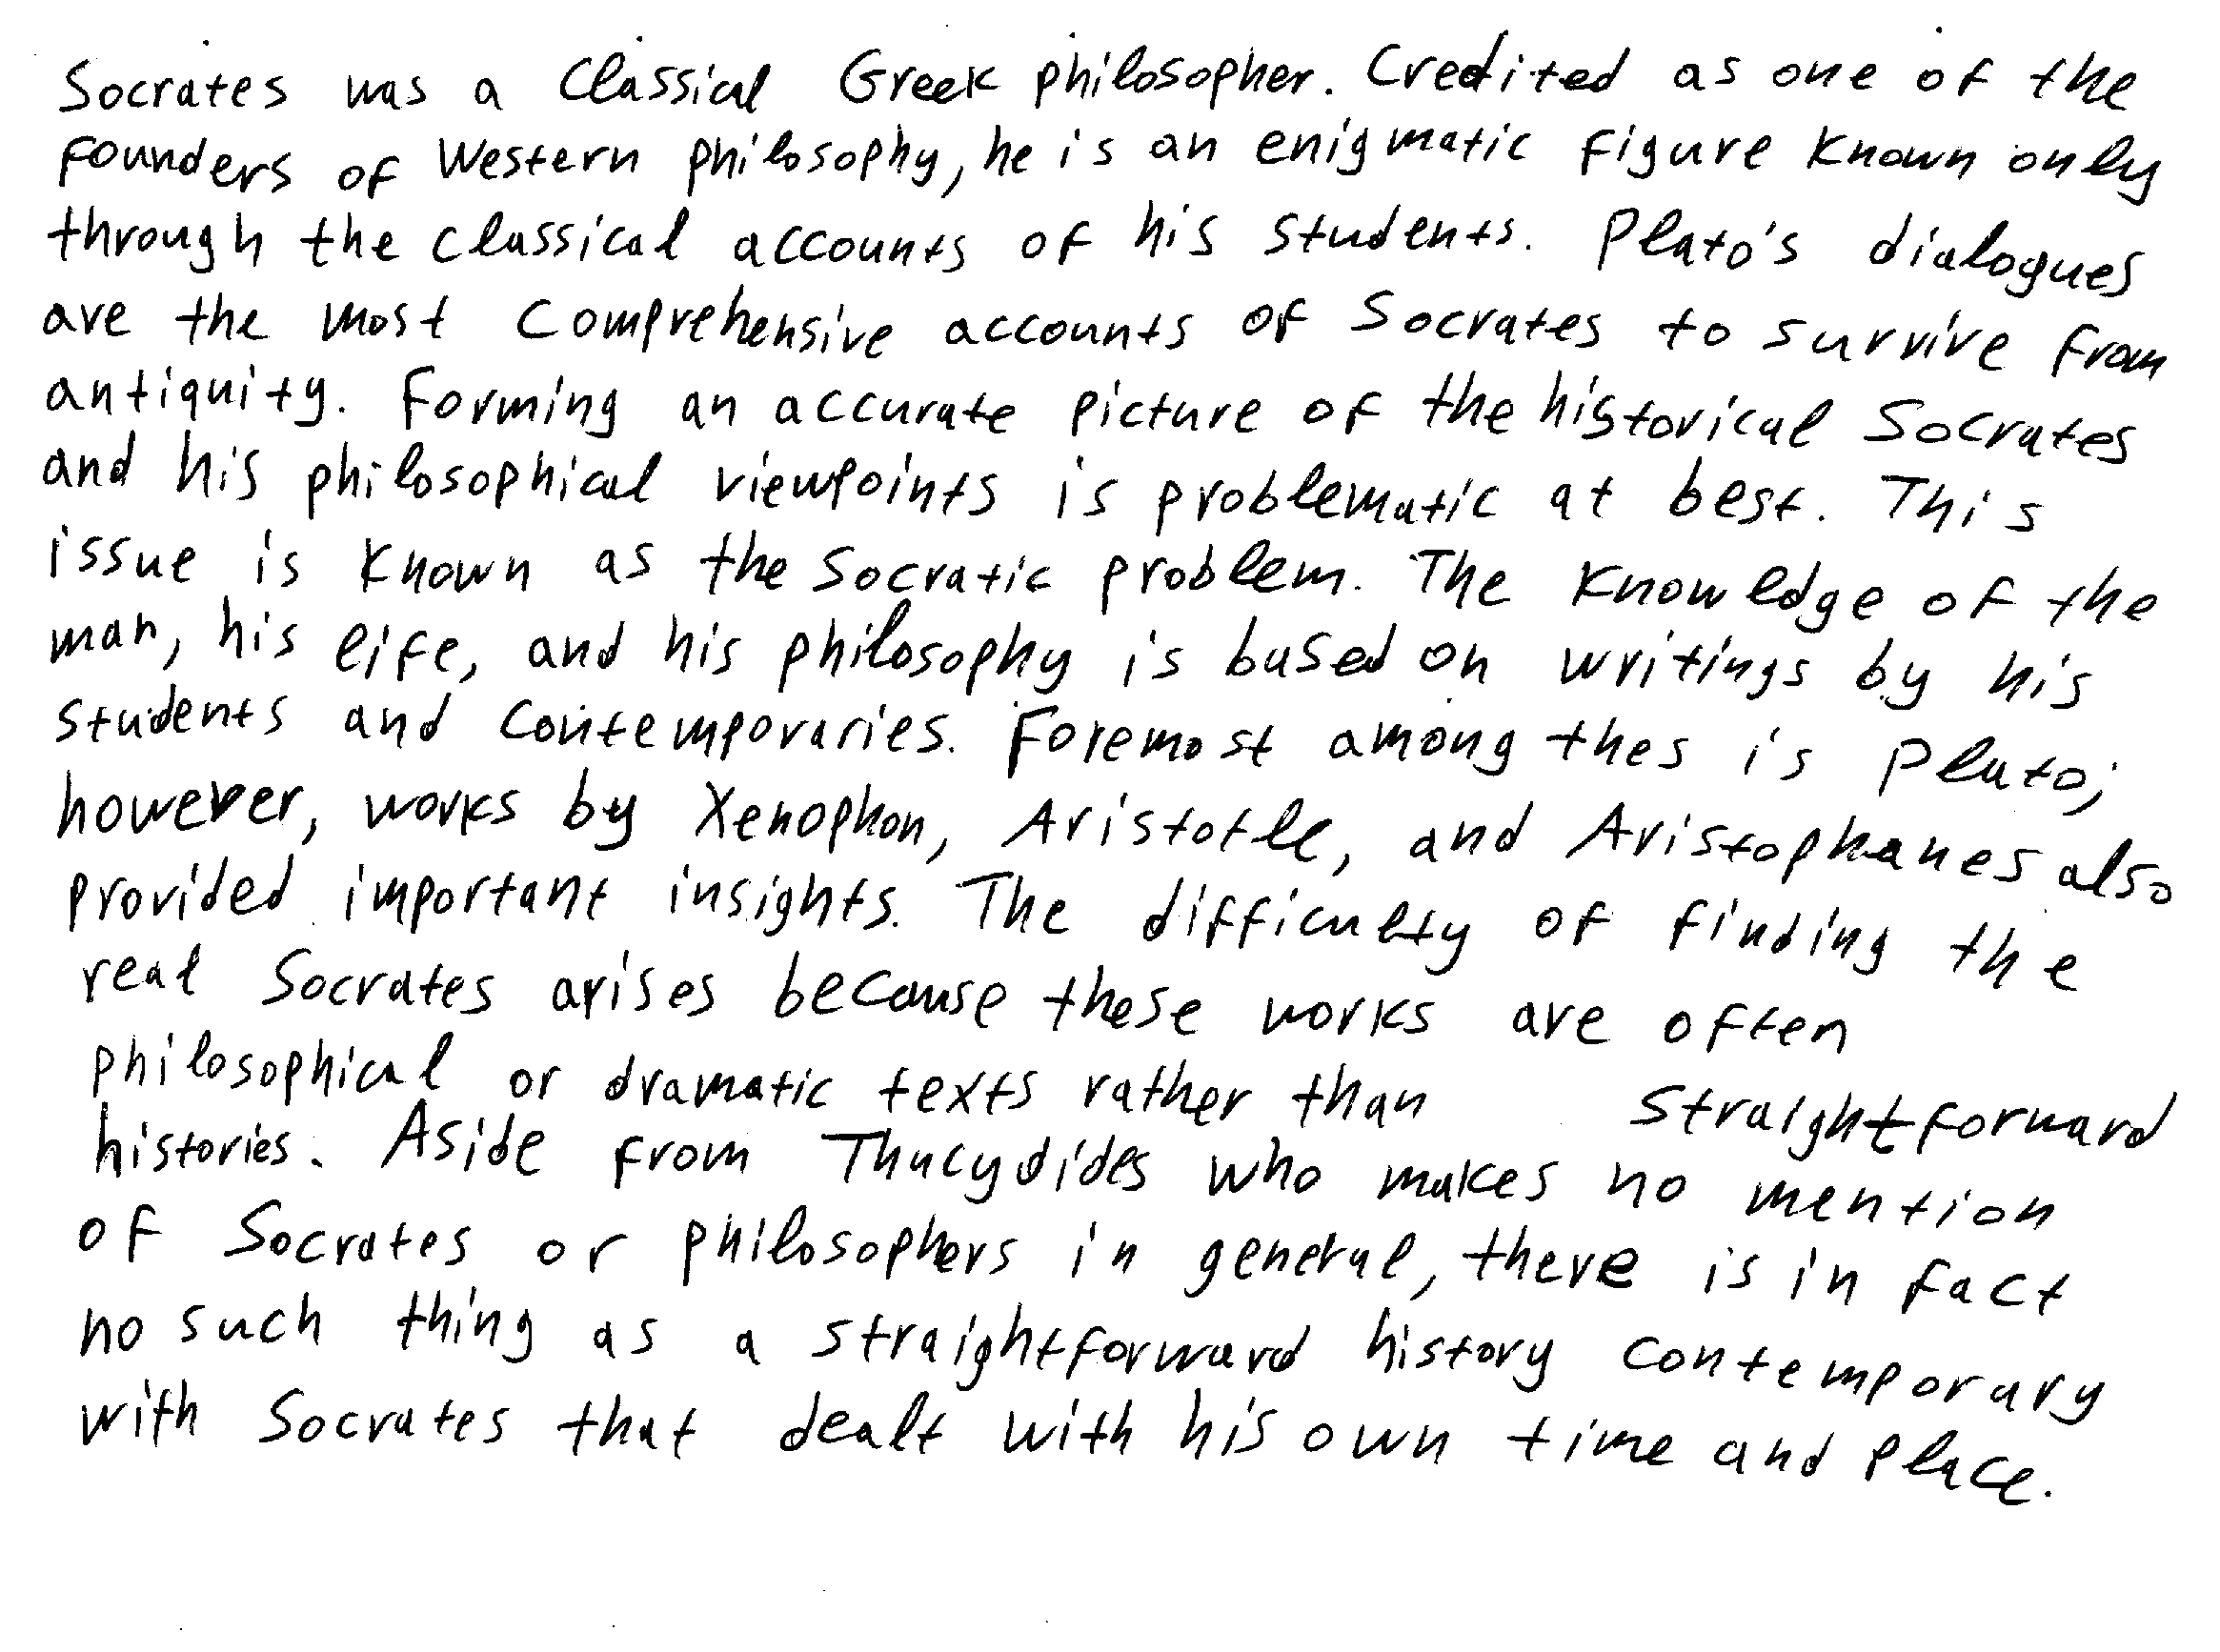 Socrates was a Classical Greek philosopher. Credited as one of the
founders of Western philosophy, he is an enigmatic figure known only
through the classical accounts of his students. Plato's dialogues
are the most comprehensive accounts of Socrates to survive from
antiquity. Forming an accurate picture of the historical Socrates
and his philosophical viewpoints is problematic at best. This
issue is known as the Socratic problem. The knowledge of the
man, his life, and his philosophy is based on writings by his
students and contemporaries. Foremost among thes is Plato;
however, works by Xenophon, Aristotle, and Aristophanes also
provided important insights. The difficulty of finding the
real Socrates arises because these works are often
philosophical or dramatic texts rather than straightforward
histories. Aside from Thucydides who makes no mention
of Socrates or philosophers in general, there is in fact
no such thing as a straightforward history contemporary
with Socrates that dealt with his own time and place.